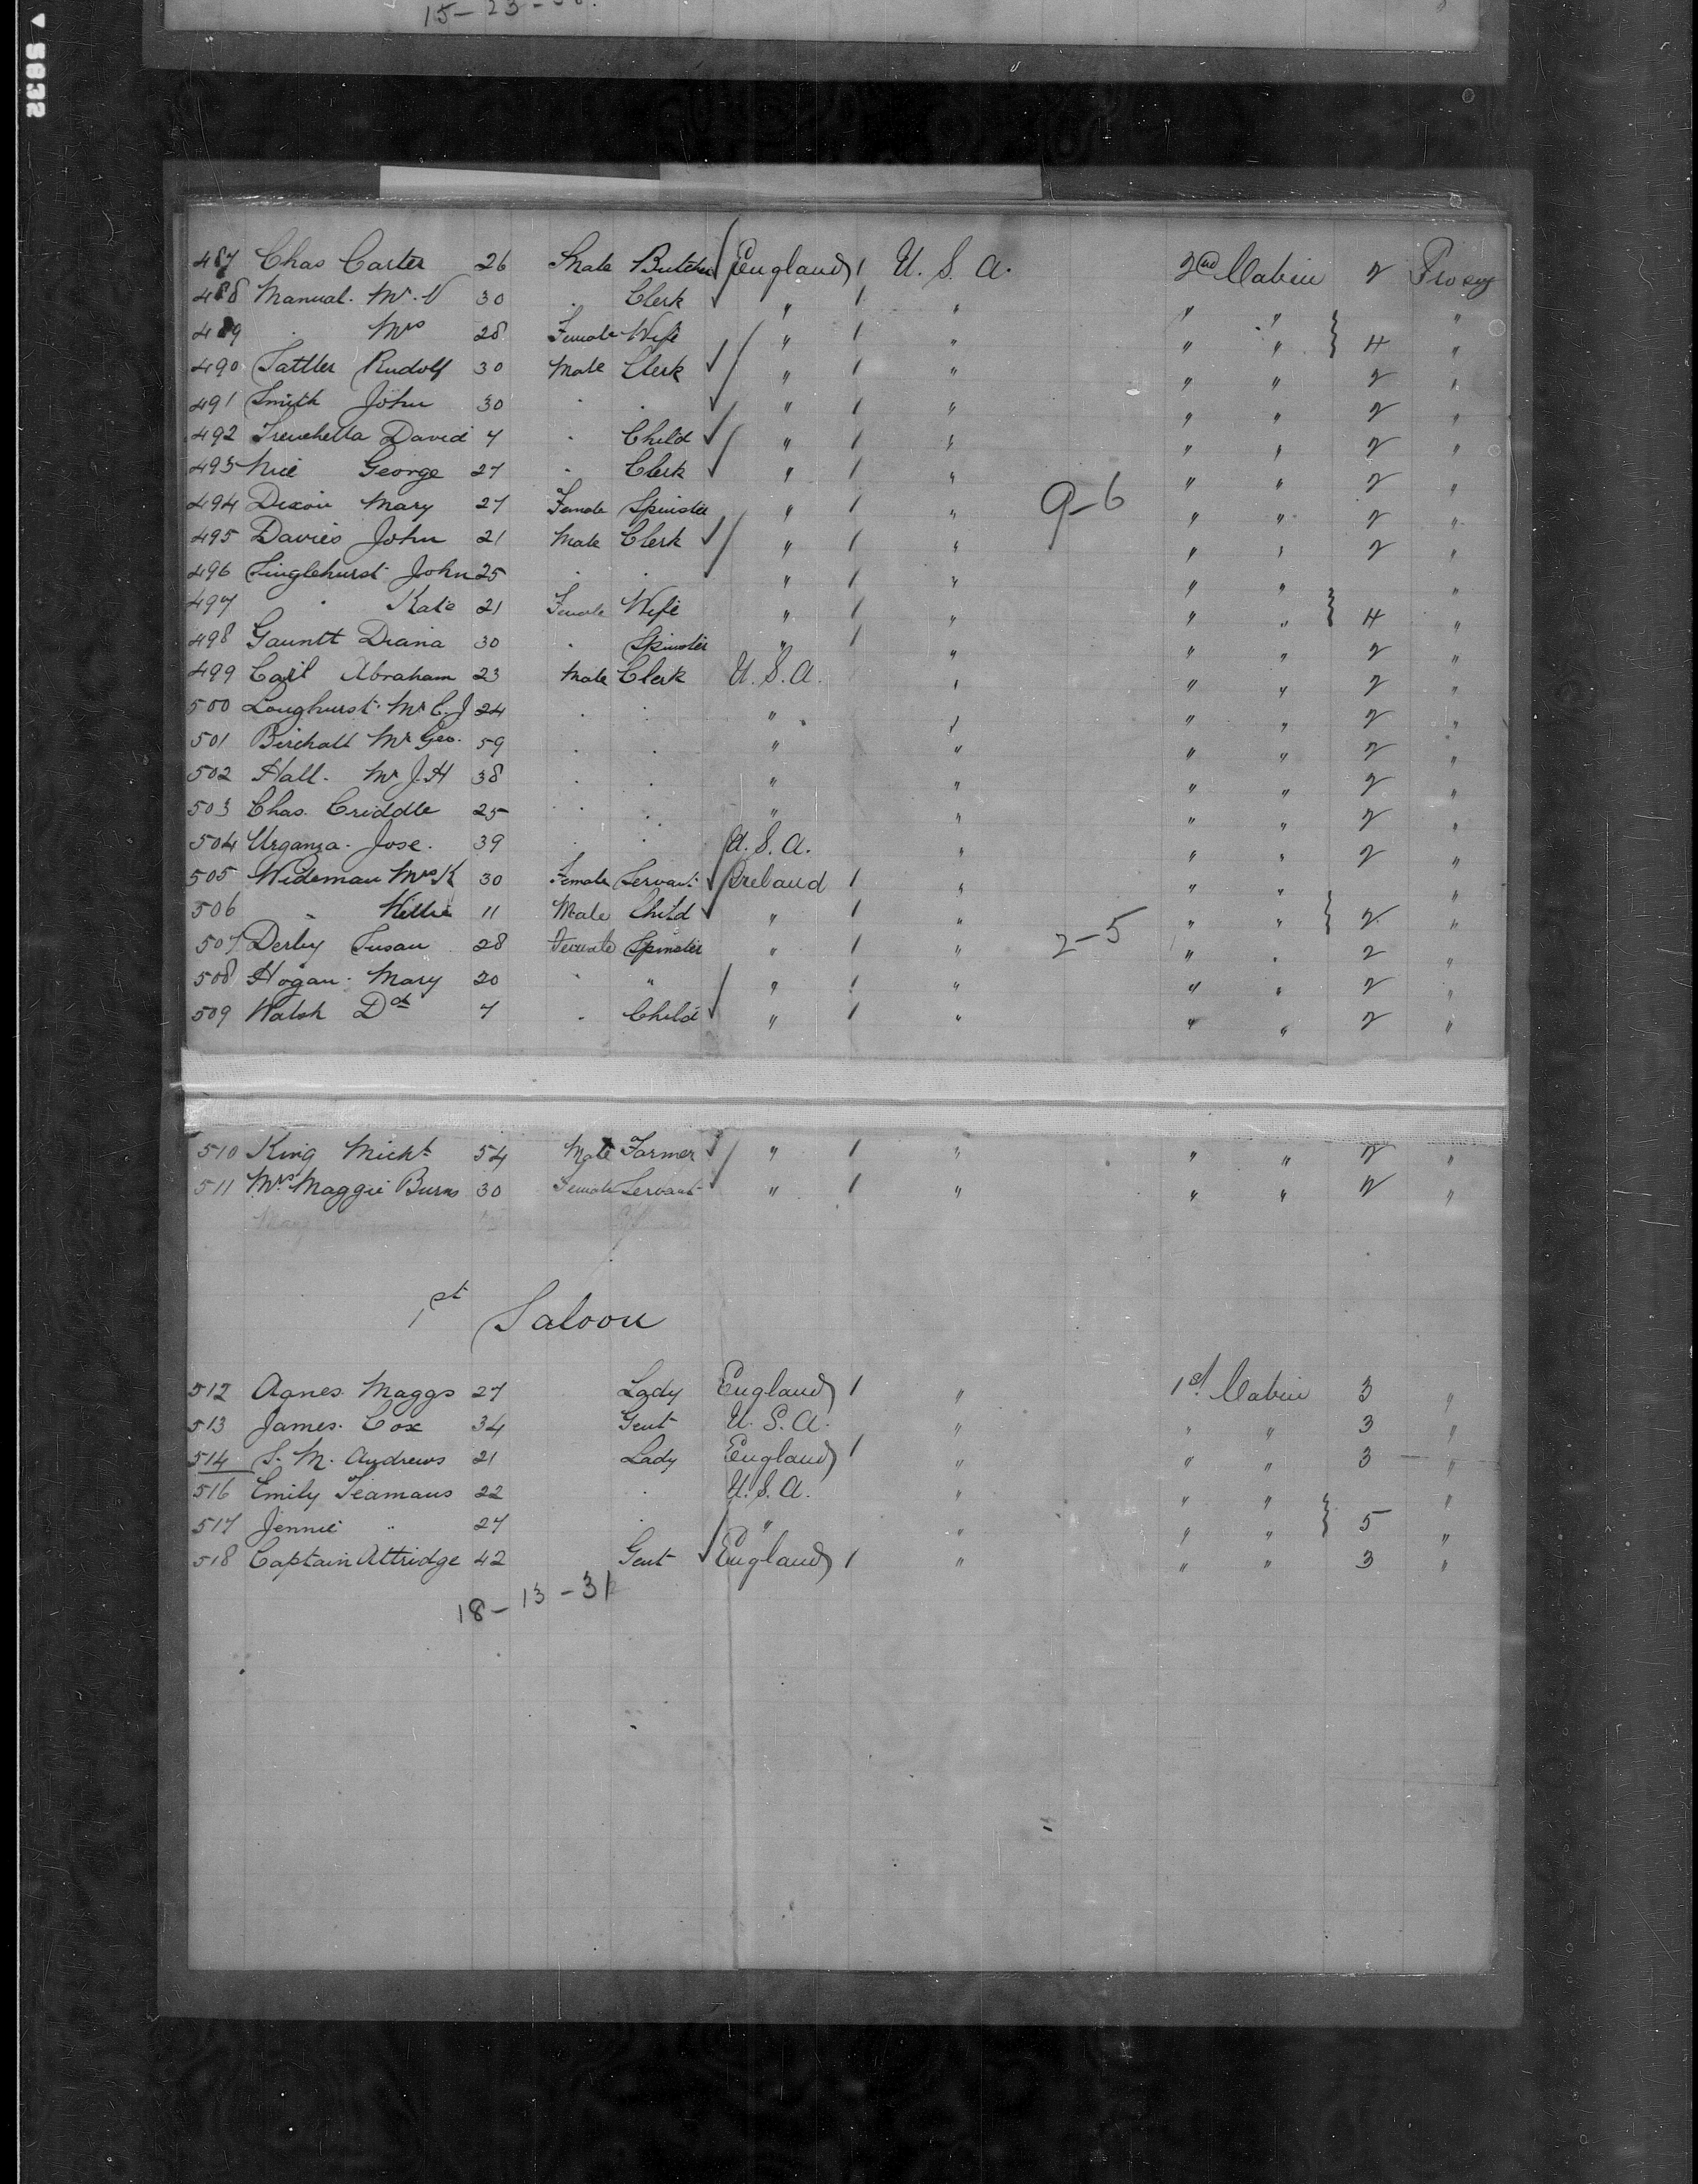 15-23-38.
5832
487 Chas Carter 26 Male Butcher England 1 U. S. A. 2nd Cabin 2 Proseg
488 Manual. Mr. V 30 . Clerk " 1 " " " "
489 . Mrs 28 Female Wife " 1 " " " } 4 "
490 Sattler Rudolf 30 Male Clerk " 1 " " " 2 "
491 Smith John 30 . . " 1 " " " 2 "
492 Trewhella David 7 . Child " 1 " " " 2 "
493 George 27 . Clerk " 1 " " " 2 "
494 Dixon Mary 27 Female Spinster " 1 " 9-6 " " 2 "
495 Davies John 21 Male Clerk " 1 " " " 2 "
496 Singlehurst John 25 . . " 1 " " " "
497 " Kate 21 Female Wife " 1 " " " } 4 "
498 Gauntt Diana 30 . Spinster " 1 " " " 2 "
499 Abraham 23 Male Clerk U. S. A. " " " 2 "
500 Longhurst Mr C. J 24 . . " " " " 2 "
501 Birchall Mr Geo. 59 . . " " " " 2 "
502 Hall. Mr J. H 38 . . " " " " 2 "
503 Chas. Criddle 25 . . " " " " 2 "
504 Urganza. Jose. 39 . . U. S. A. " " " 2 "
505 Wideman Mrs K 30 Female Servant Ireland 1 " " " "
506 " Willie 11 Male Child " 1 " " " } 2 "
507 Derby Susan 28 Female Spinster " 1 " 2-5 " " 2 "
508 Hogan. Mary 20 " " " 1 " " " 2 "
509 Walsh Do 7 . Child " 1 " " " 2 "
510 King Michl 54 Male Farmer " 1 " " " 2 "
511 Mrs Maggie Burns 30 Female Servant " 1 " " " 2 "
1st Saloon
512 Agnes Maggs 27 Lady England 1 " 1st Cabin 3 "
513 James. Cox 34 Gent U. S. A. " " " 3 "
514 S. M. Andrews 21 Lady England 1 " " " 3 "
516 Emily Teamans 22 . U. S. A. " " " "
517 Jennie " 27 . " " " " } 5 "
518 Captain Attridge 42 Gent England 1 " " " 3 "
18-13-31